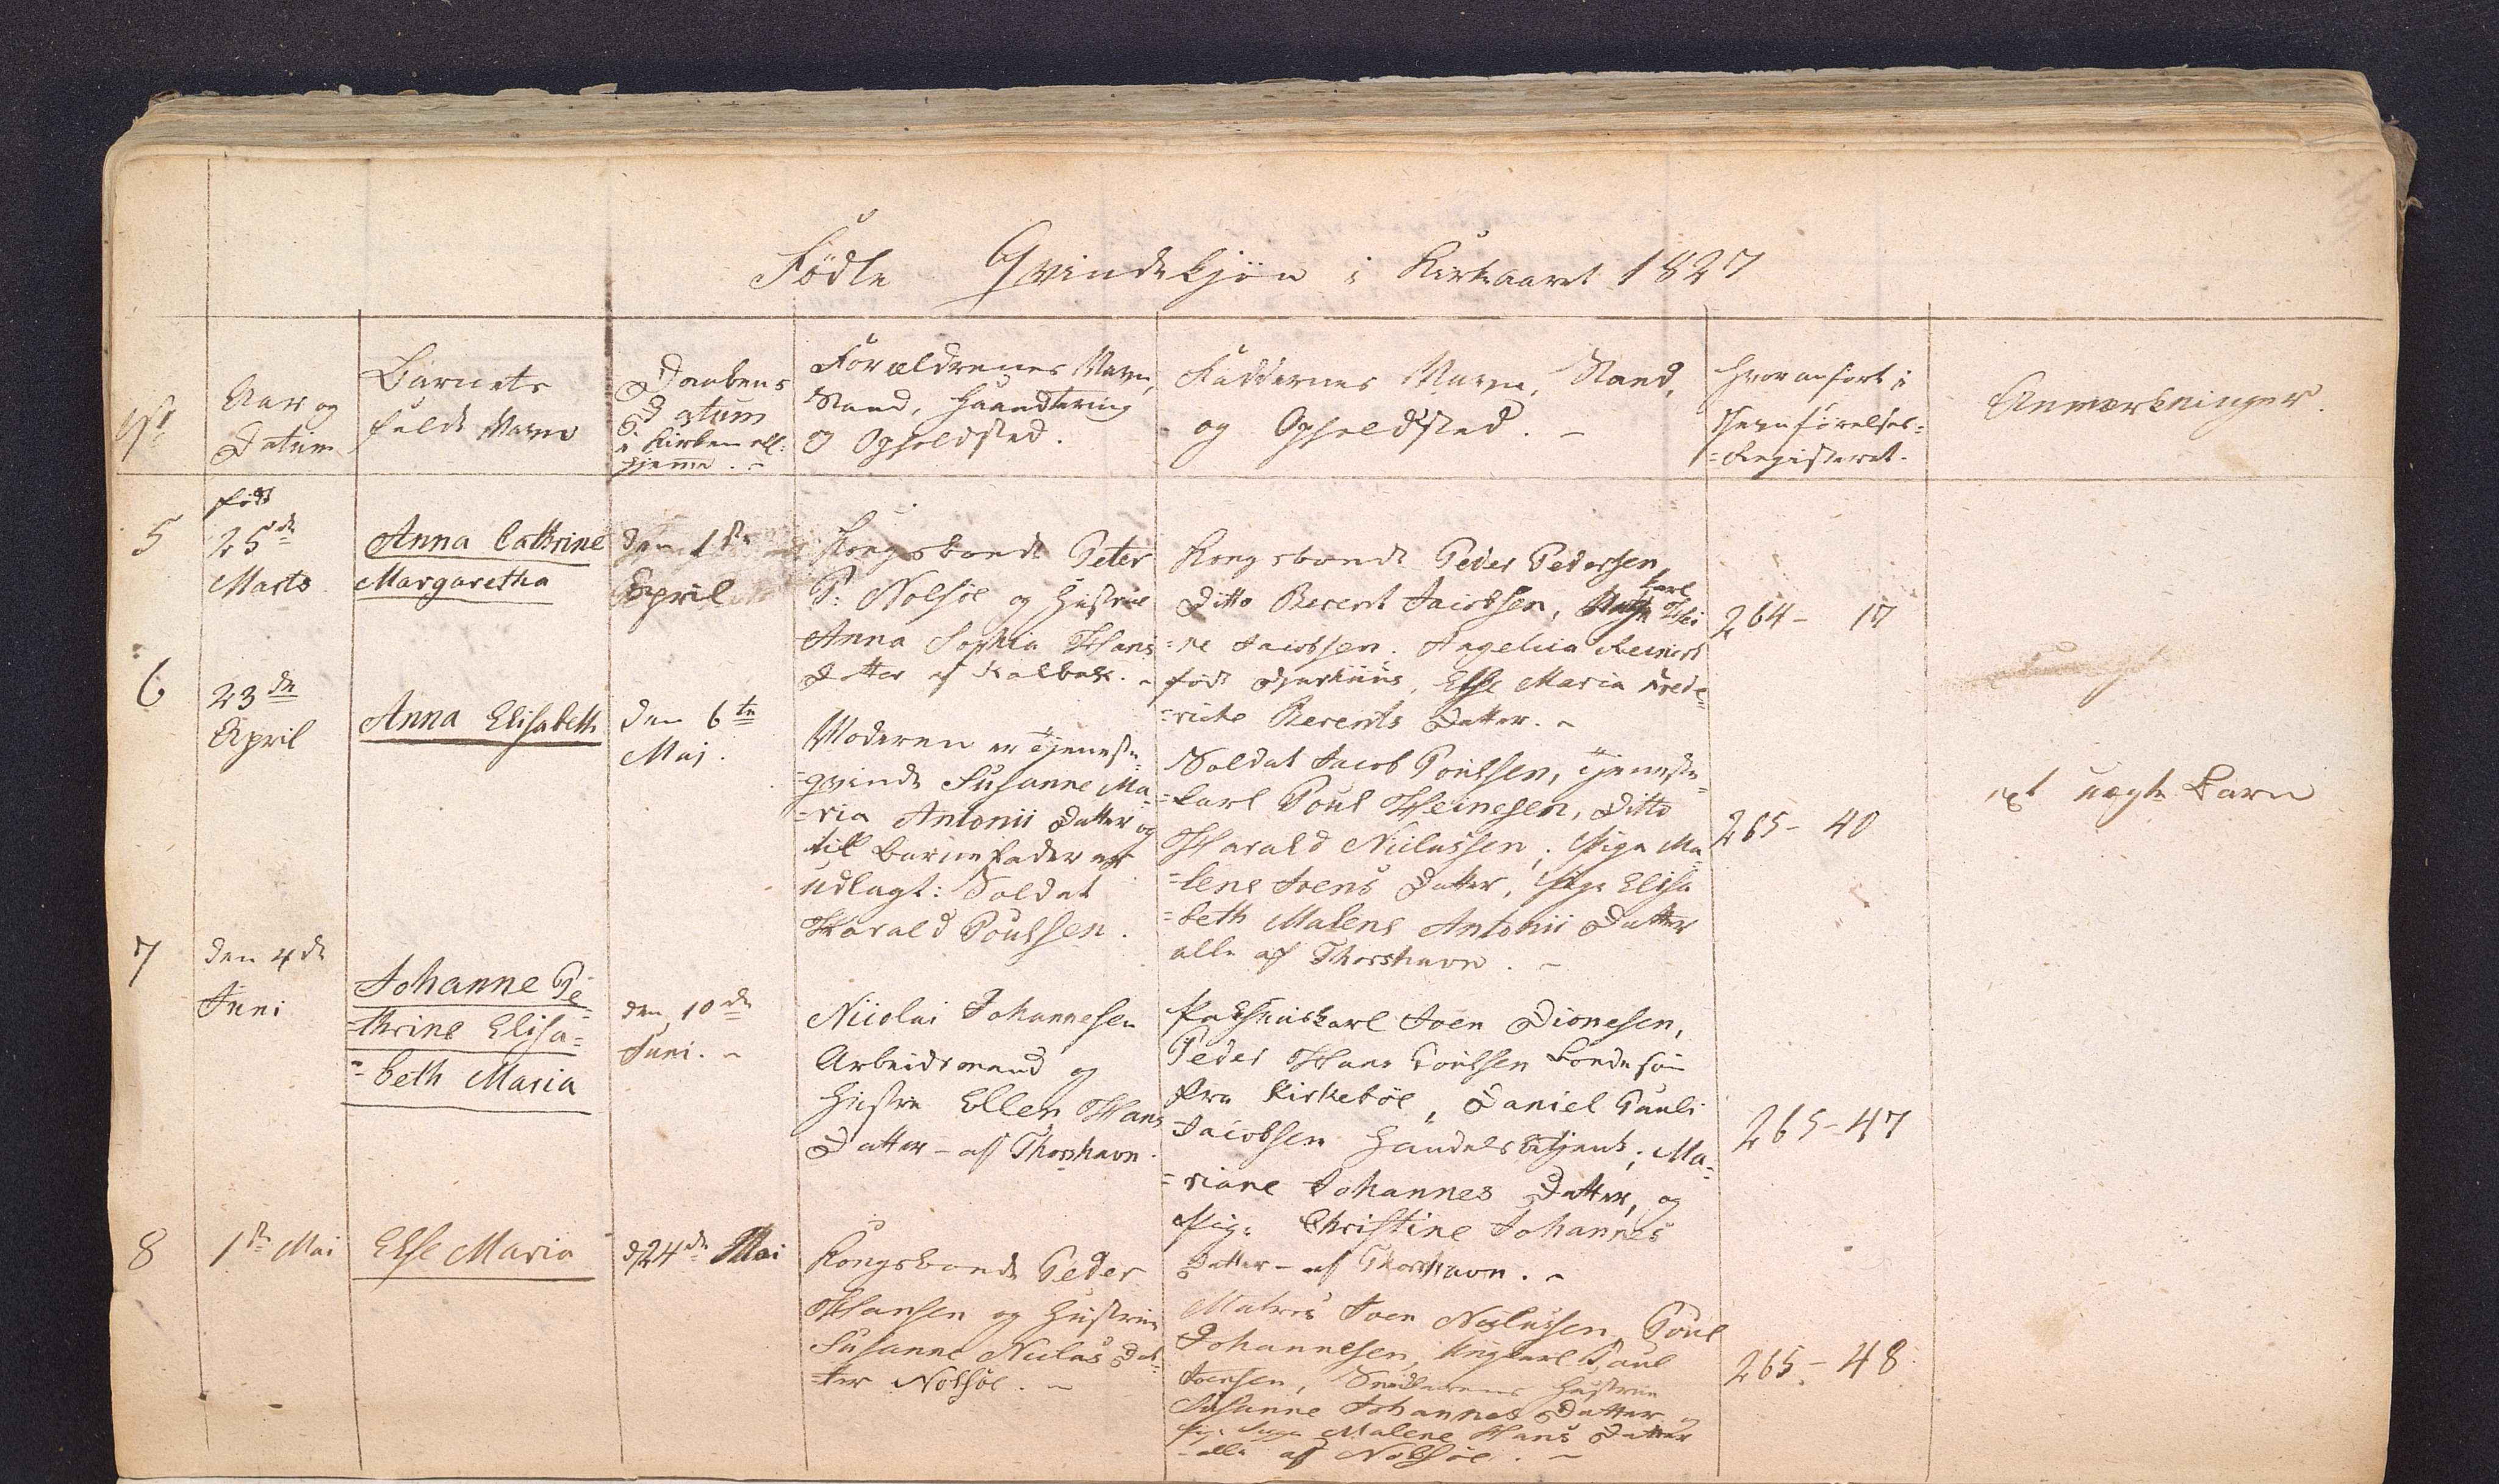 Födte Qvindekjön i Kirkeaaret 1827
No
Aar og
Datum
Barnets
fulde Navn
Daabens
Datum
i Kirken ell:
hjemme. -
Forældrenes Navn,
Stand, Haandtering
og Opholdsted.
Faddernes Navn, Stand,
og Opholdsted. -
Hvor anfört i
Jevnförelses-
=Registeret.
Anmærkninger.
5
född
25de
Marts
Anna Cathrine
Margaretha
den 1ste
April
Kongsbonde Peter
P: Nolsöe og Hustrue
Anna Sophia Hans
Datter af Kalbak. -
Kongsbonde Peder Pedersen,
Ditto Berent Jacobsen, Karl Hei
=ne Jacobsen. Angelica Reinert
född Djurhuus, Else Maria Frede
=ricke Berents Datter. -
264 - 17
6
23de
April
Anna Elisabeth
den 6te
Mai.
Moderen er Tjeneste-
=qvinde Susanne Ma-
=ria Antonii Datter og
till Barnefader er
udlagt: Soldat
Harald Poulsen.
Soldat Jacob Poulsen, Tjeneste-
=karl Poul Heinesen, Ditto
Harald Niclassen; Pige Ma-
=lene Joens Datter, Pige Elisa
=beth Malene Antonii Datter
alle af Thorshavn. -
265 - 40
et uægte Barn
7
den 4de
Juni
Johanne Pe-
=thrine Elisa=
=beth Maria
den 10de
Juni. -
Nicolai Johannesen
Arbeidsmand og
Hustru Ellen Hans
Datter - af Thorshavn.
Pakhuuskarl Joen Dionesen,
Peder Hans Poulsen Bondesön
fra Kirkeböe, Daniel Pauli
Jacobsen Handelsbetjent; Ma-
=riane Johannes Datter, og
Pige Christine Johannes
Datter - af Thorshavn. -
265 - 47
8
1ste Mai
Else Maria
d. 24de Mai
Kongsbonde Peder
Hansen og Hustrue
Susanne Niclas Dat-
=ter Nolsöe. -
Matros Joen Niclassen, Poul
Johannesen, Ungkarl Paul
Joensen, Hustrue
Susanne Johannes Datter og
Pige Malene Hans Datter
alle af Nolsöe. -
265 - 48